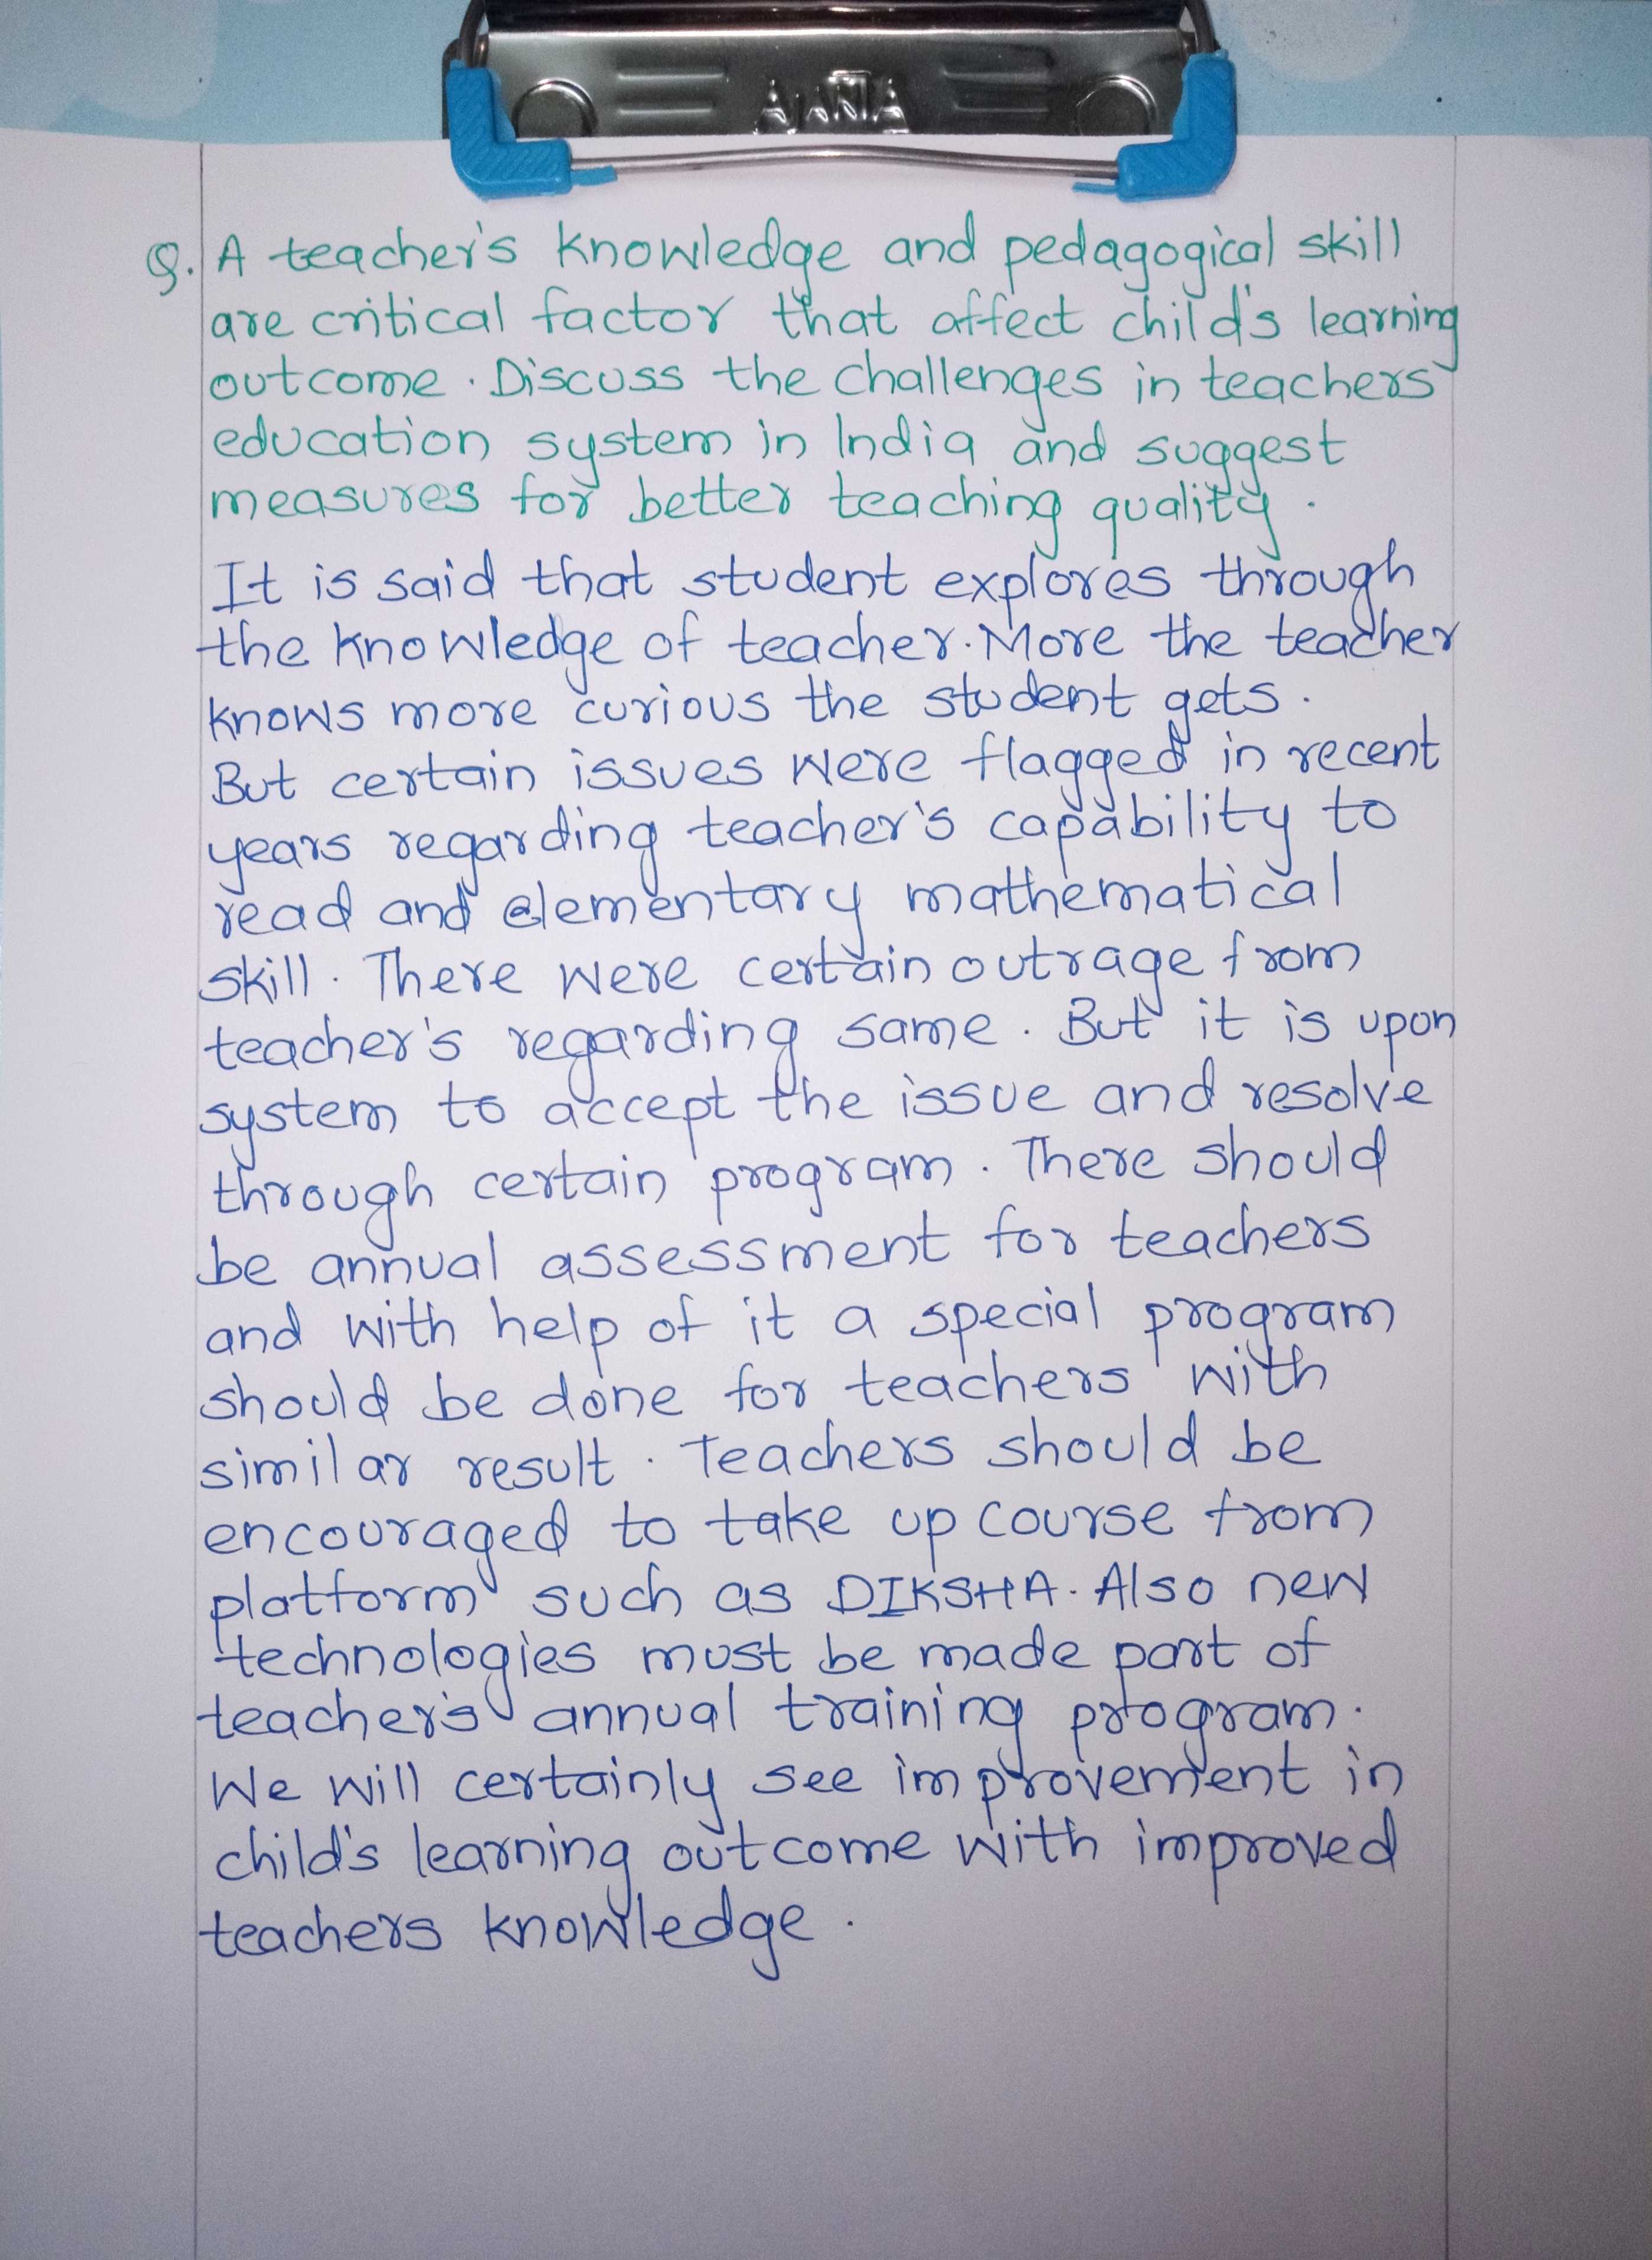 AJANTA
Q. A teacher's knowledge and pedagogical skill
are critical factor that affect child's learning
outcome. Discuss the challenges in teachers'
education system in India and suggest
measures for better teaching quality.
It is said that student explores through
the knowledge of teacher. More the teacher
knows more curious the student gets.
But certain issues were flagged in recent
years regarding teacher's capability to
read and elementary mathematical
skill. There were certain outrage from
teacher's regarding same. But it is upon
system to accept the issue and resolve
through certain program. There should
be annual assessment for teachers
and with help of it a special program
should be done for teachers with
similar result. Teachers should be
encouraged to take up course from
platform such as DIKSHA. Also new
technologies must be made part of
teacher's annual training program.
We will certainly see improvement in
child's learning outcome with improved
teachers knowledge.